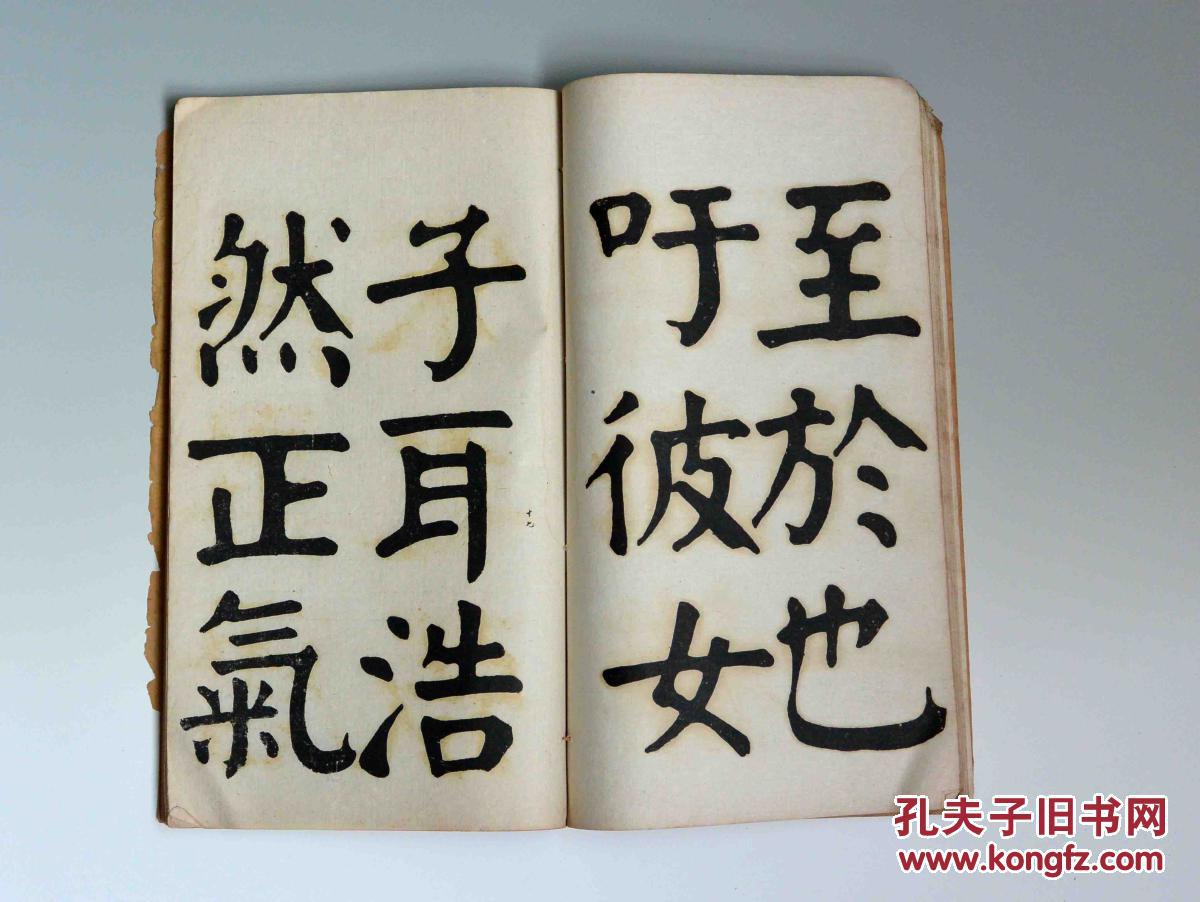 至於也
吁彼女
子耳浩
然正氣
十九
孔夫子旧书网
www.kongfz.com